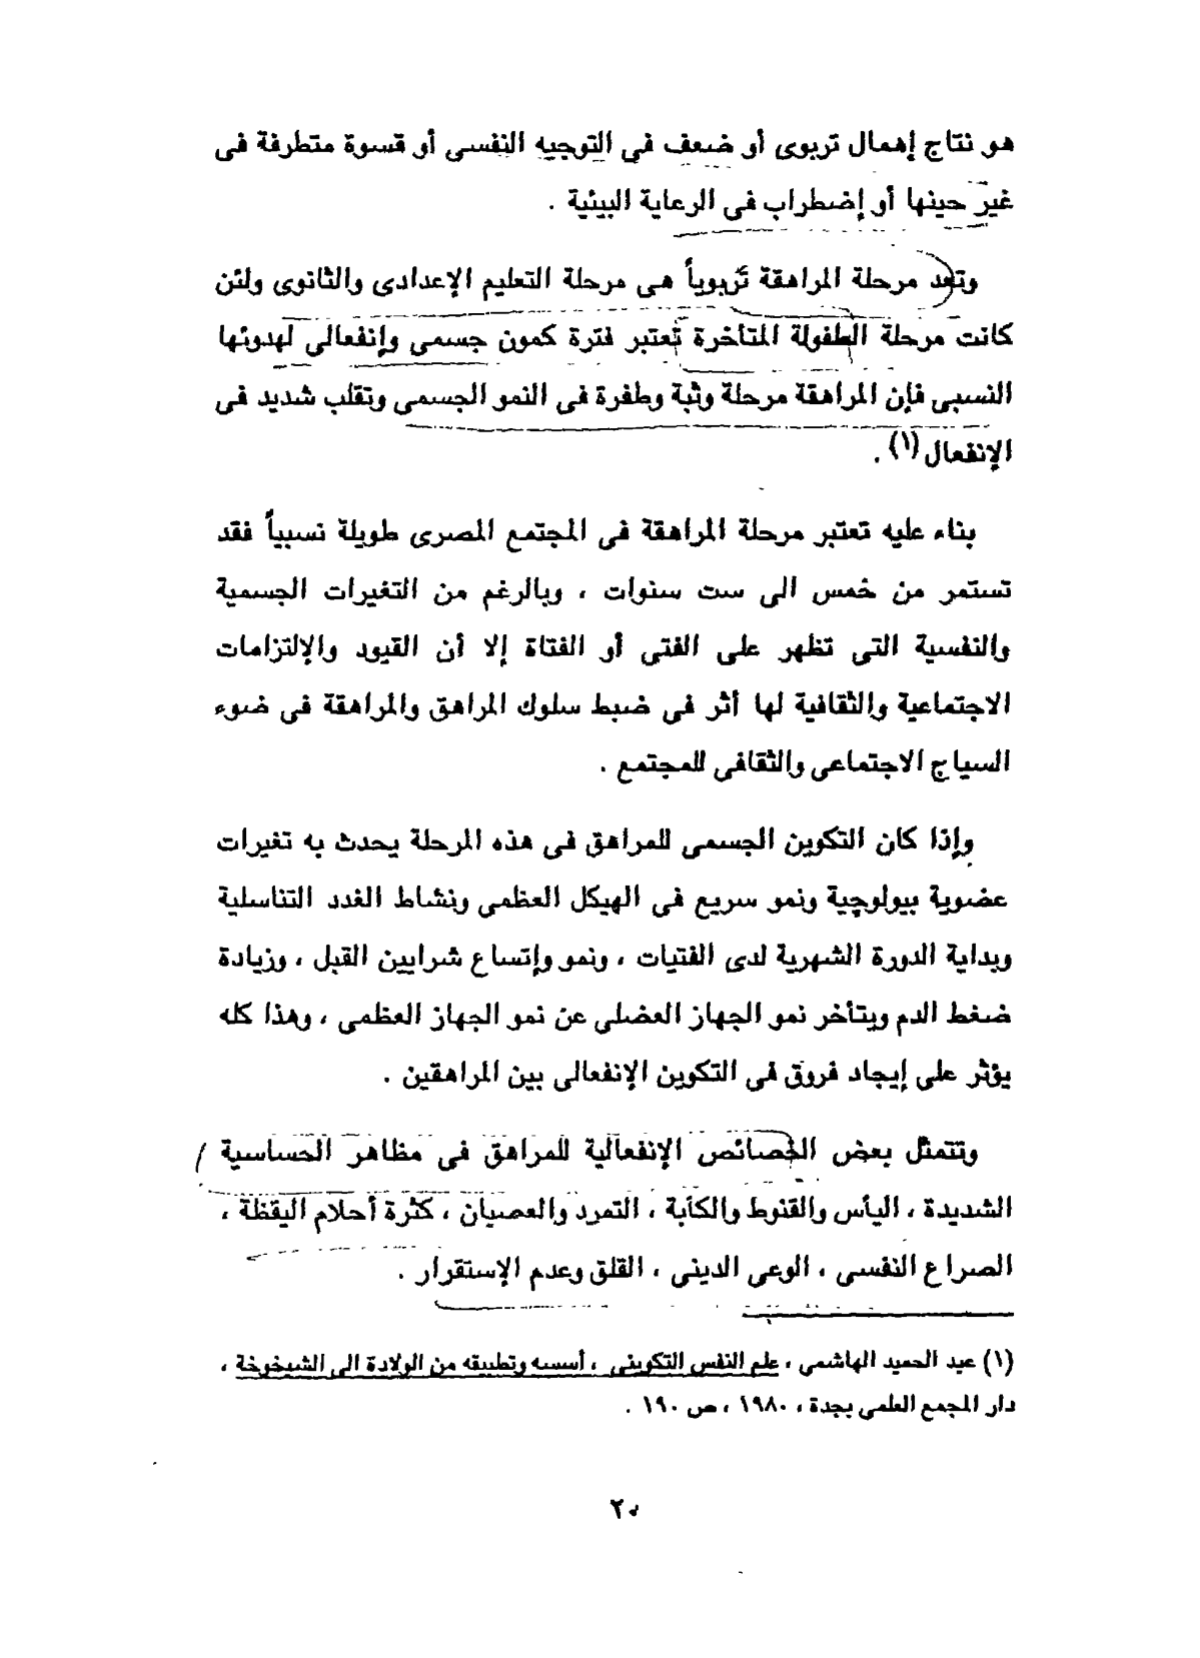 هو نتاج إهمال تربوى أو ضعف فى التوجيه النفسى أو قسوة متطرفة فى
غير حينها أو إضطراب فى الرعاية البيئية .
وتعد مرحلة المراهقة تربوياً هى مرحلة التعليم الإعدادى والثانوى ولئن
كانت مرحلة الطفولة المتأخرة تعتبر فترة كمون جسمى وإنفعالى لهدوئها
النسبى فإن المراهقة مرحلة وثبة وطفرة فى النمو الجسمى وتقلب شديد فى
الإنفعال (١) .
بناء عليه تعتبر مرحلة المراهقة فى المجتمع المصرى طويلة نسبياً فقد
تستمر من خمس الى ست سنوات ، وبالرغم من التغيرات الجسمية
والنفسية التى تظهر على الفتى أو الفتاة إلا أن القيود والإلتزامات
الاجتماعية والثقافية لها أثر فى ضبط سلوك المراهق والمراهقة فى ضوء
السياج الاجتماعى والثقافى للمجتمع .
وإذا كان التكوين الجسمى للمراهق فى هذه المرحلة يحدث به تغيرات
عضوية بيولوجية ونمو سريع فى الهيكل العظمى ونشاط الغدد التناسلية
وبداية الدورة الشهرية لدى الفتيات ، ونمو وإتساع شرايين القبل ، وزيادة
ضغط الدم ويتأخر نمو الجهاز العضلى عن نمو الجهاز العظمى ، وهذا كله
يؤثر على إيجاد فروق فى التكوين الإنفعالى بين المراهقين .
وتتمثل بعض الخصائص الإنفعالية للمراهق فى مظاهر الحساسية
الشديدة ، اليأس والقنوط والكآبة ، التمرد والعصيان ، كثرة أحلام اليقظة ،
الصراع النفسى ، الوعى الدينى ، القلق وعدم الإستقرار .
(١) عبد الحميد الهاشمى ، علم النفس التكوينى ، أسسه وتطبيقه من الولادة الى الشيخوخة ،
دار المجمع العلمى بجدة ، ١٩٨٠ ، ص ١٩٠ .
٢٠